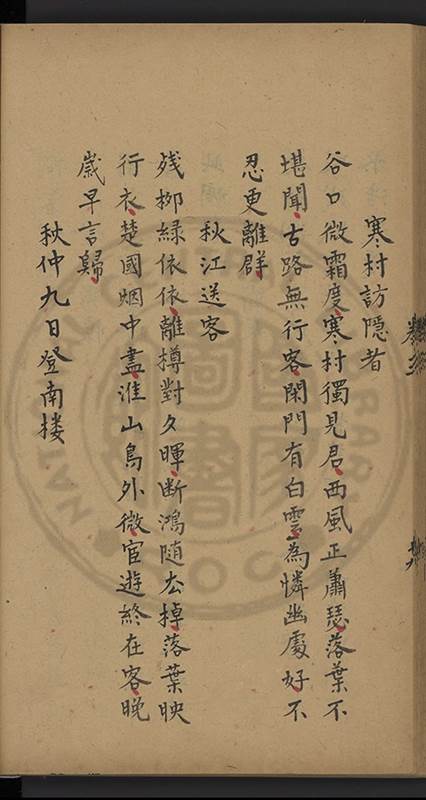 寒村訪隱者
谷口微霜度寒村獨見君西風正蕭瑟落葉不
堪聞古路無行客閑門有白雲為憐幽處好不
忍更離群
秋江送客
残栁緑依依離樽對夕暉断鴻随去棹落葉映
行衣楚國烟中盡淮山鳥外微宦遊終在客晚
歲早言歸
秋仲九日登南楼